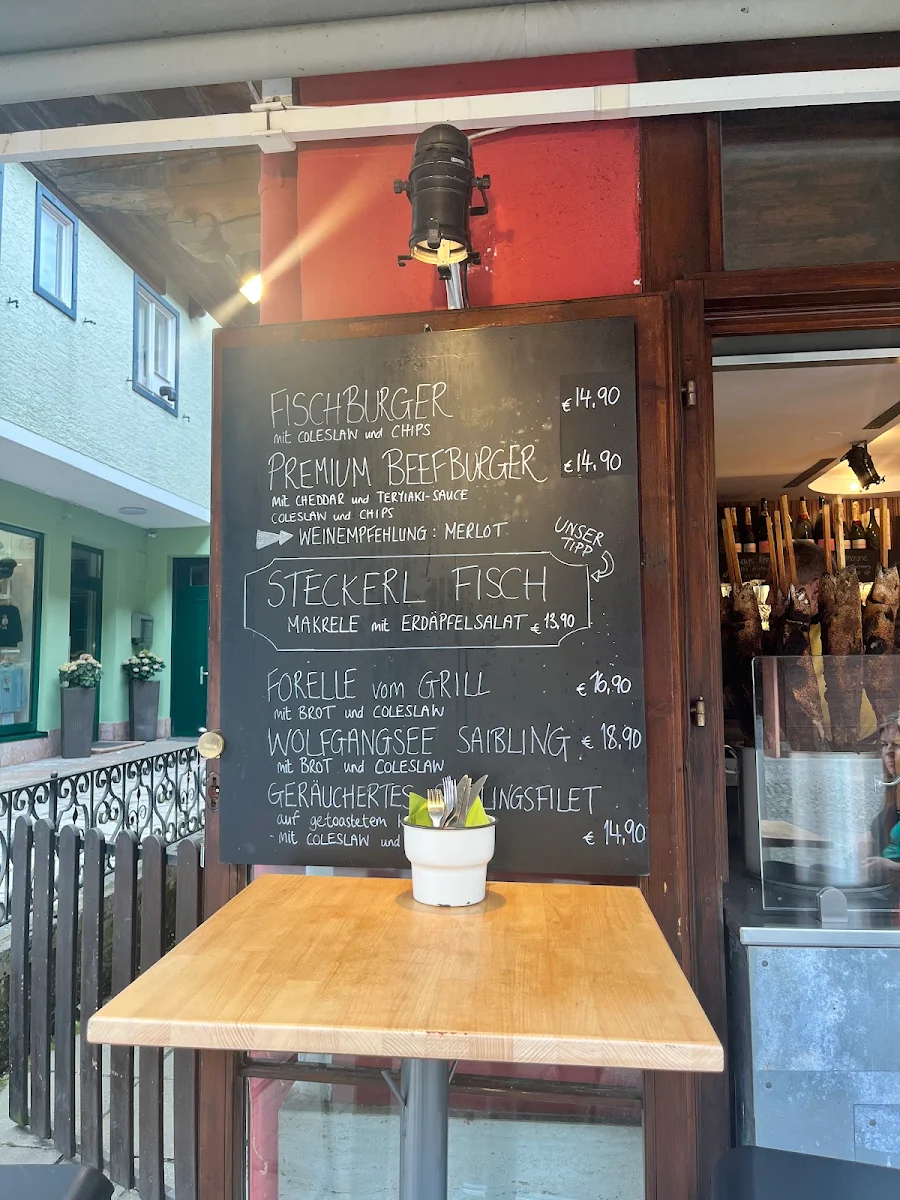 FISCHBURGER €14,90
mit COLESLAW und CHIPS
PREMIUM BEEFBURGER €14,90
mit CHEDDAR und TERYIAKI-SAUCE
COLESLAW und CHIPS
WEINEMPFEHLUNG : MERLOT
UNSER
TIPP
STECKERL FISCH
MAKRELE mit ERDÄPFELSALAT €13,90
FORELLE vom GRILL €16,90
mit BROT und COLESLAW
WOLFGANGSEE SAIBLING €18,90
mit BROT und COLESLAW
GERÄUCHERTES LINGSFILET
auf getoastetem
- mit COLESLAW und €14,90